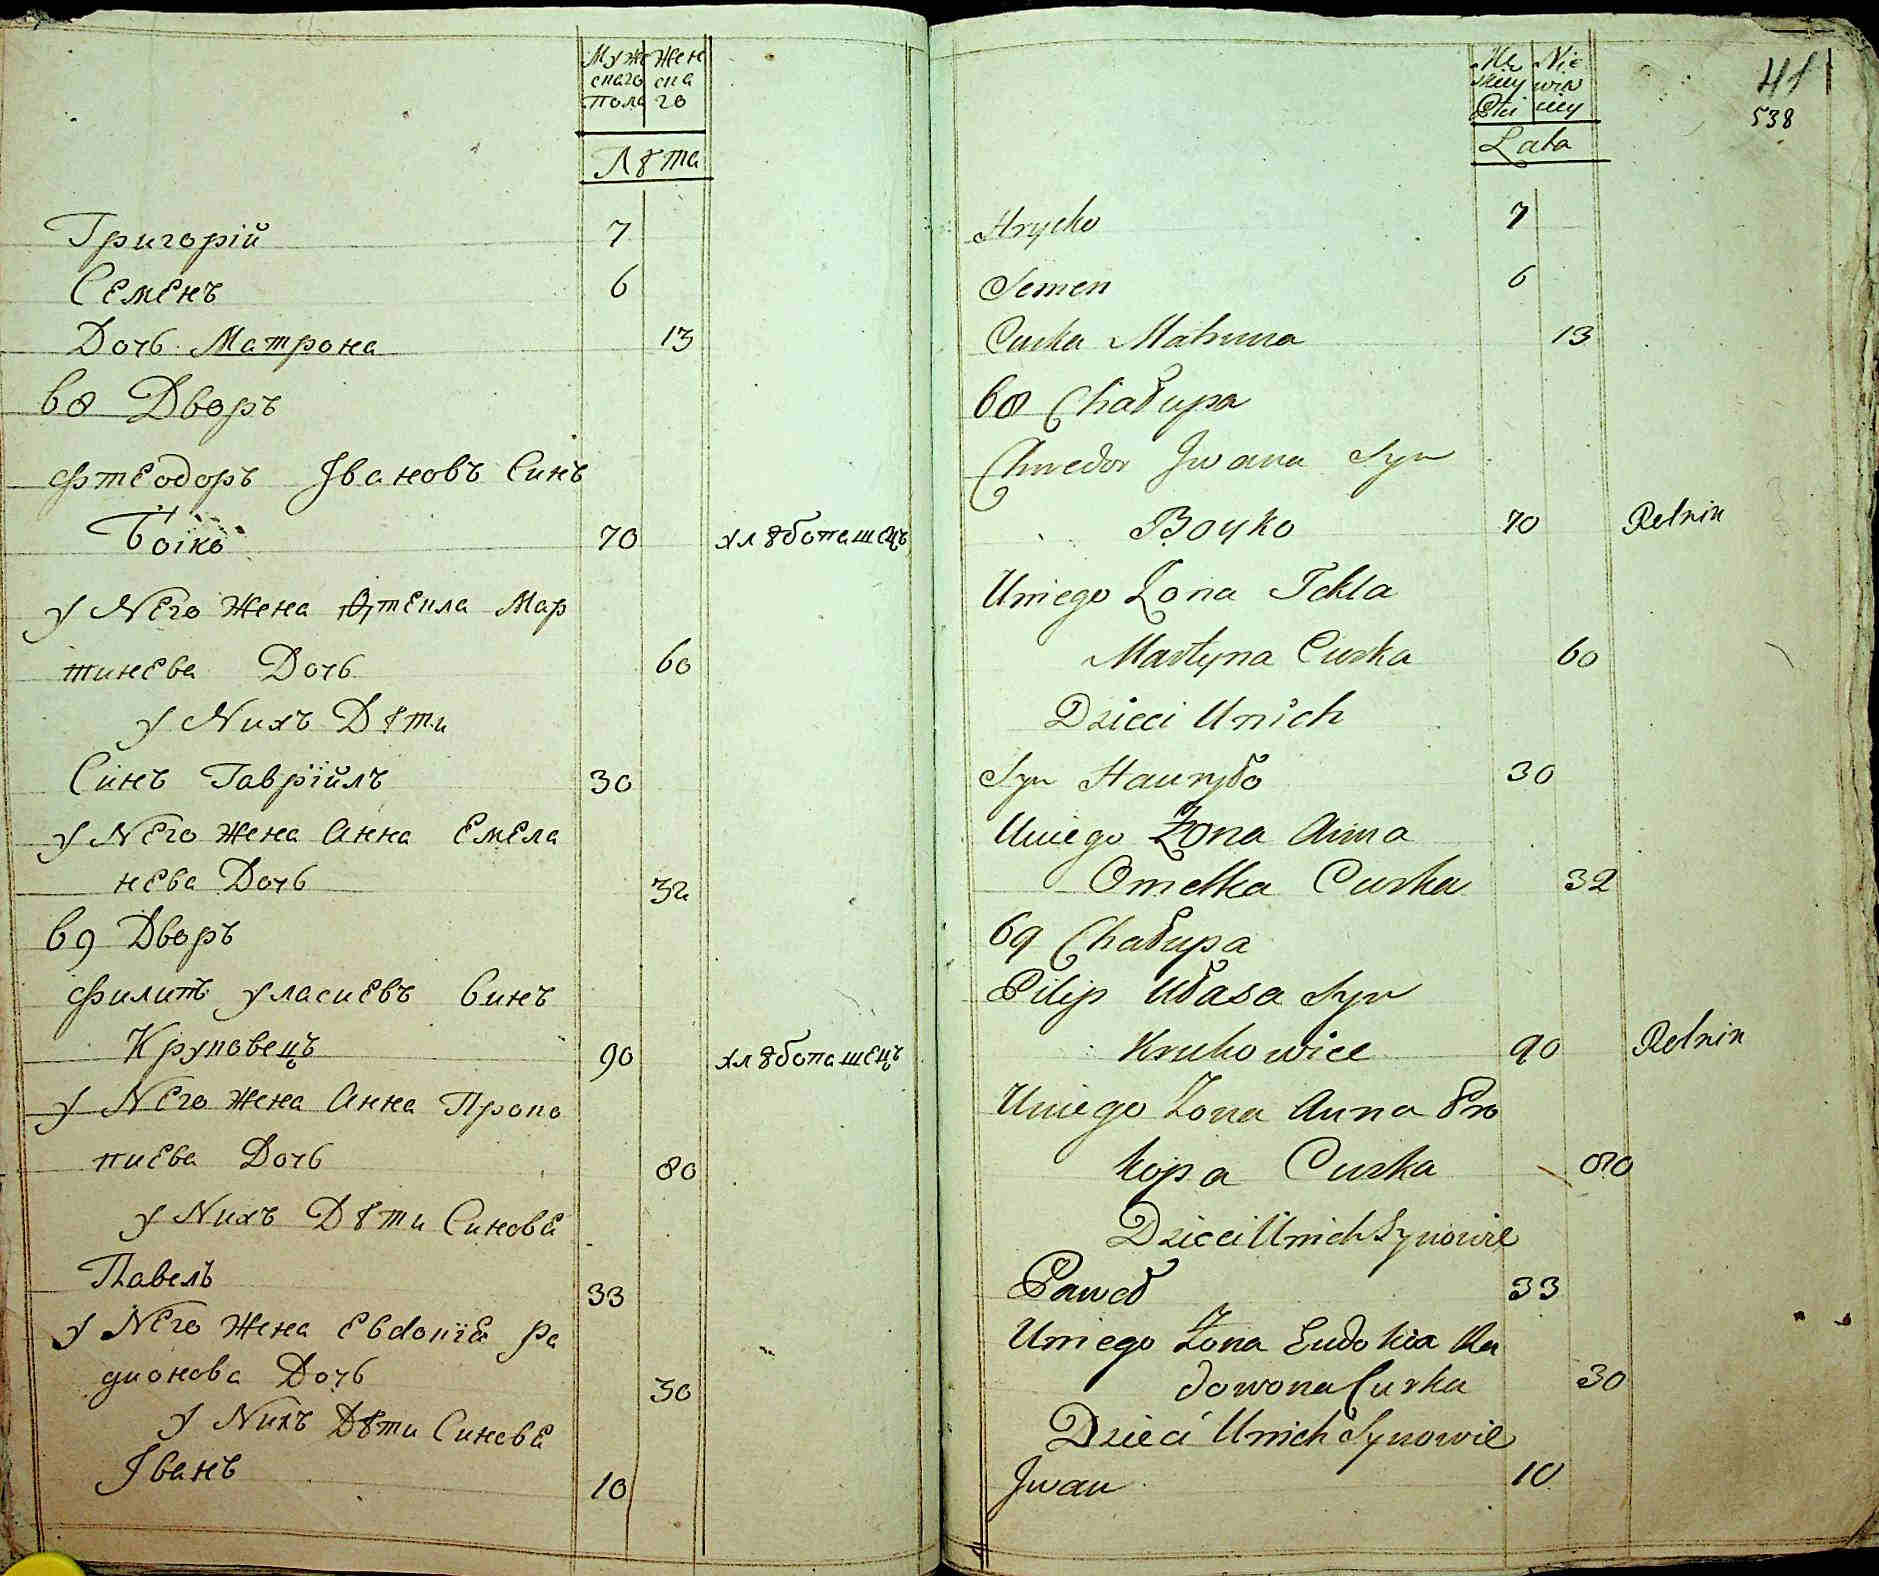 Муже Жен
скаго ска
пола го
Лѣта
Григорій 7
Семенъ 6
Дочь Матрона 13
68 Дворъ
Фтеодоръ Івановъ Синъ
Бойко 70 хлѣбопашецъ
у Него Жена Фтекла Мар
тинева Дочь 60
у Нихъ Дѣти
Синъ Гаврійлъ 30
у Него Жена Анна Емела
нева Дочь 32
69 Дворъ
Филипъ Уласиевъ Синъ
Круковецъ 90 хлѣбопашецъ
у Него Жена Анна Проко
пиева Дочь 80
у Нихъ Дѣти Синове
Павелъ 33
у Него Жена Евдокїя Ра
дионова Дочь 30
у Нихъ Дѣти Синове
Іванъ 10
41
538
Mę Nie
skiey wia
Płci ciey
Lata
Hrycko 7
Semen 6
Curka Matruna 13
68 Chałupa
Chwedor Jwana Syn
Boyko 70 Rolnik
Uniego Żona Tekla
Martyna Curka 60
Dzieci Unich
Syn Hauryło 30
Uniego Żona Anna
Omelka Curka 32
69 Chałupa
Pilip Ułasa Syn
Krukowiec 90 Rolnik
Uniego Żona Anna Pro
kopa Curka 80
Dzieci Unich Synowie
Paweł 33
Uniego Żona Eudokia Ra
dowona Curka 30
Dzieci Unich Synowie
Jwan 10